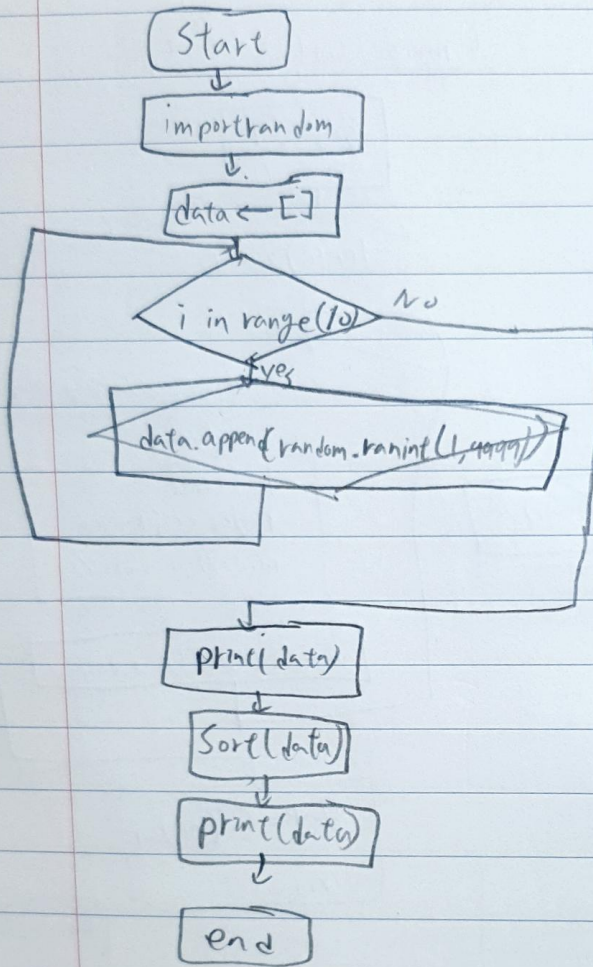 Start
importrandom
data ← []
i in range(10)
No
yes
data.append(random.ranint(1,9999))
print(data)
Sort(data)
print(data)
end